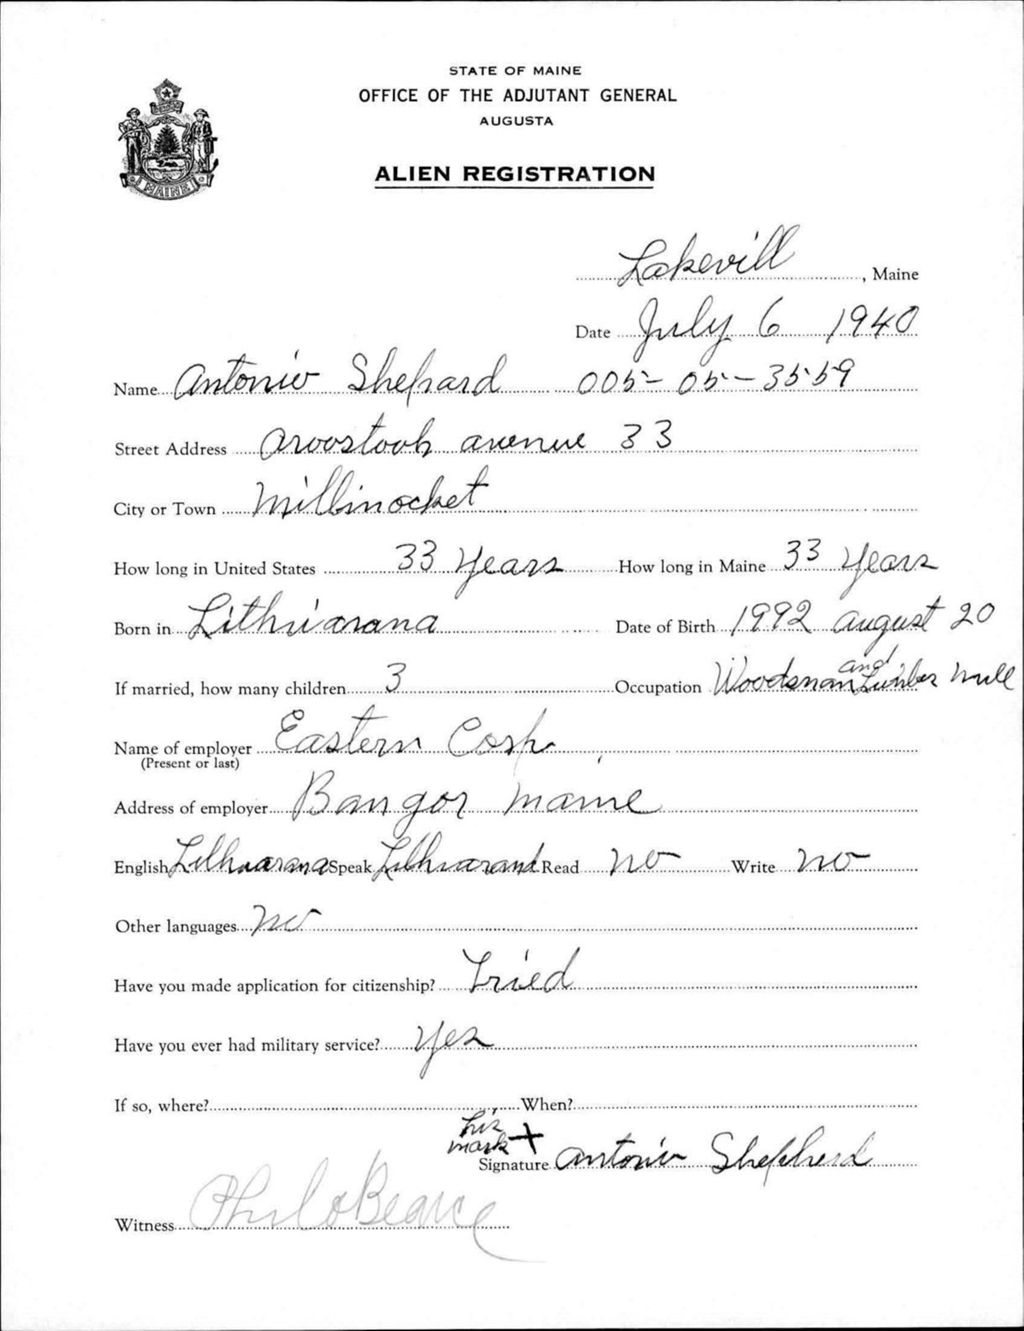 STATE OF MAINE
OFFICE OF THE ADJUTANT GENERAL
AUGUSTA
ALIEN REGISTRATION
MAINE
Lakevill, Maine
Date July 6 1940
Name Antonio Shepard 005-05-3559
Street Address Aroostook avenue 33
City or Town Millinocket
How long in United States 33 Years How long in Maine 33 Years
Born in Lithuiarana Date of Birth 1992 august 20
If married, how many children 3 Occupation Woodsman and Lumber mill
Name of employer Eastern Corp.
(Present or last)
Address of employer Bangor maine
English Lithuarana Speak Lithuarand Read no Write no
Other languages no
Have you made application for citizenship? Tried
Have you ever had military service? Yes
If so, where? When?
his
mark +
Signature Antonio Shepherd
Witness Philo Bearce